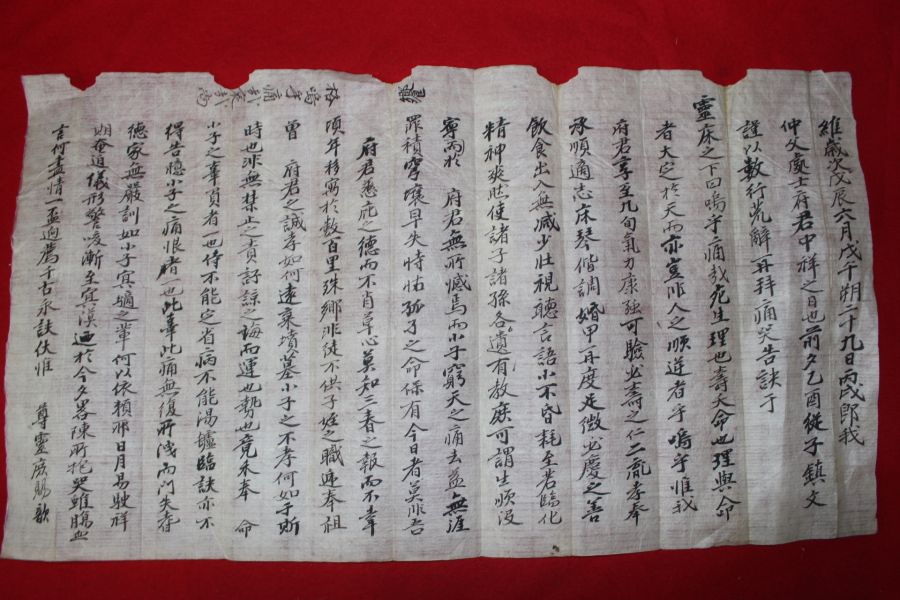 維歲次戊辰六月戊午朔二十九日丙戌卽我
仲父處士府君中祥之日也前夕乙酉從子鎭文
謹以數行荒辭再拜痛哭告訣于
靈床之下曰嗚乎痛哉死生理也壽夭命也理與命
者大定於天而亦豈非人之順逆者乎嗚乎惟我
府君享至九旬氣力康强可驗必壽之仁二 孝奉
承順適志床琴偕調婚甲再度足徵必慶之善
飮食出入無減少壯視聽言語小不昏耗至若臨化
精神爽然使諸子諸孫各遺有敎庶可謂生順沒
寧而於 府君無所憾焉而小子窮天之痛去益無涯
罪積穹壤早失恃怙孤子之命保有今日者莫非吾
府君悉庇之德而不肖草心莫知三春之報而不幸
頃年移寓於數百里殊鄕非徒不供子姪之職遞奉祖
曾 府君之誠孝如何遠棄墳墓小子之不孝何如于斯
時也非無禁止之責 諒之誨而運也勢也竟未奉 命
小子之辜負者一也侍不能定省病不能湯 臨訣亦不
得告 小子之痛恨者一也此辜此痛無復所洩而門失 
德家無嚴訓如小子冥 之輩何以依賴耶日月易駛祥
期奄迫儀形警咳漸至冥漠 於今夕畧陳所抱哭雖腸血
言何盡情一盃 薦千古永訣伏惟 尊靈庶賜 歆